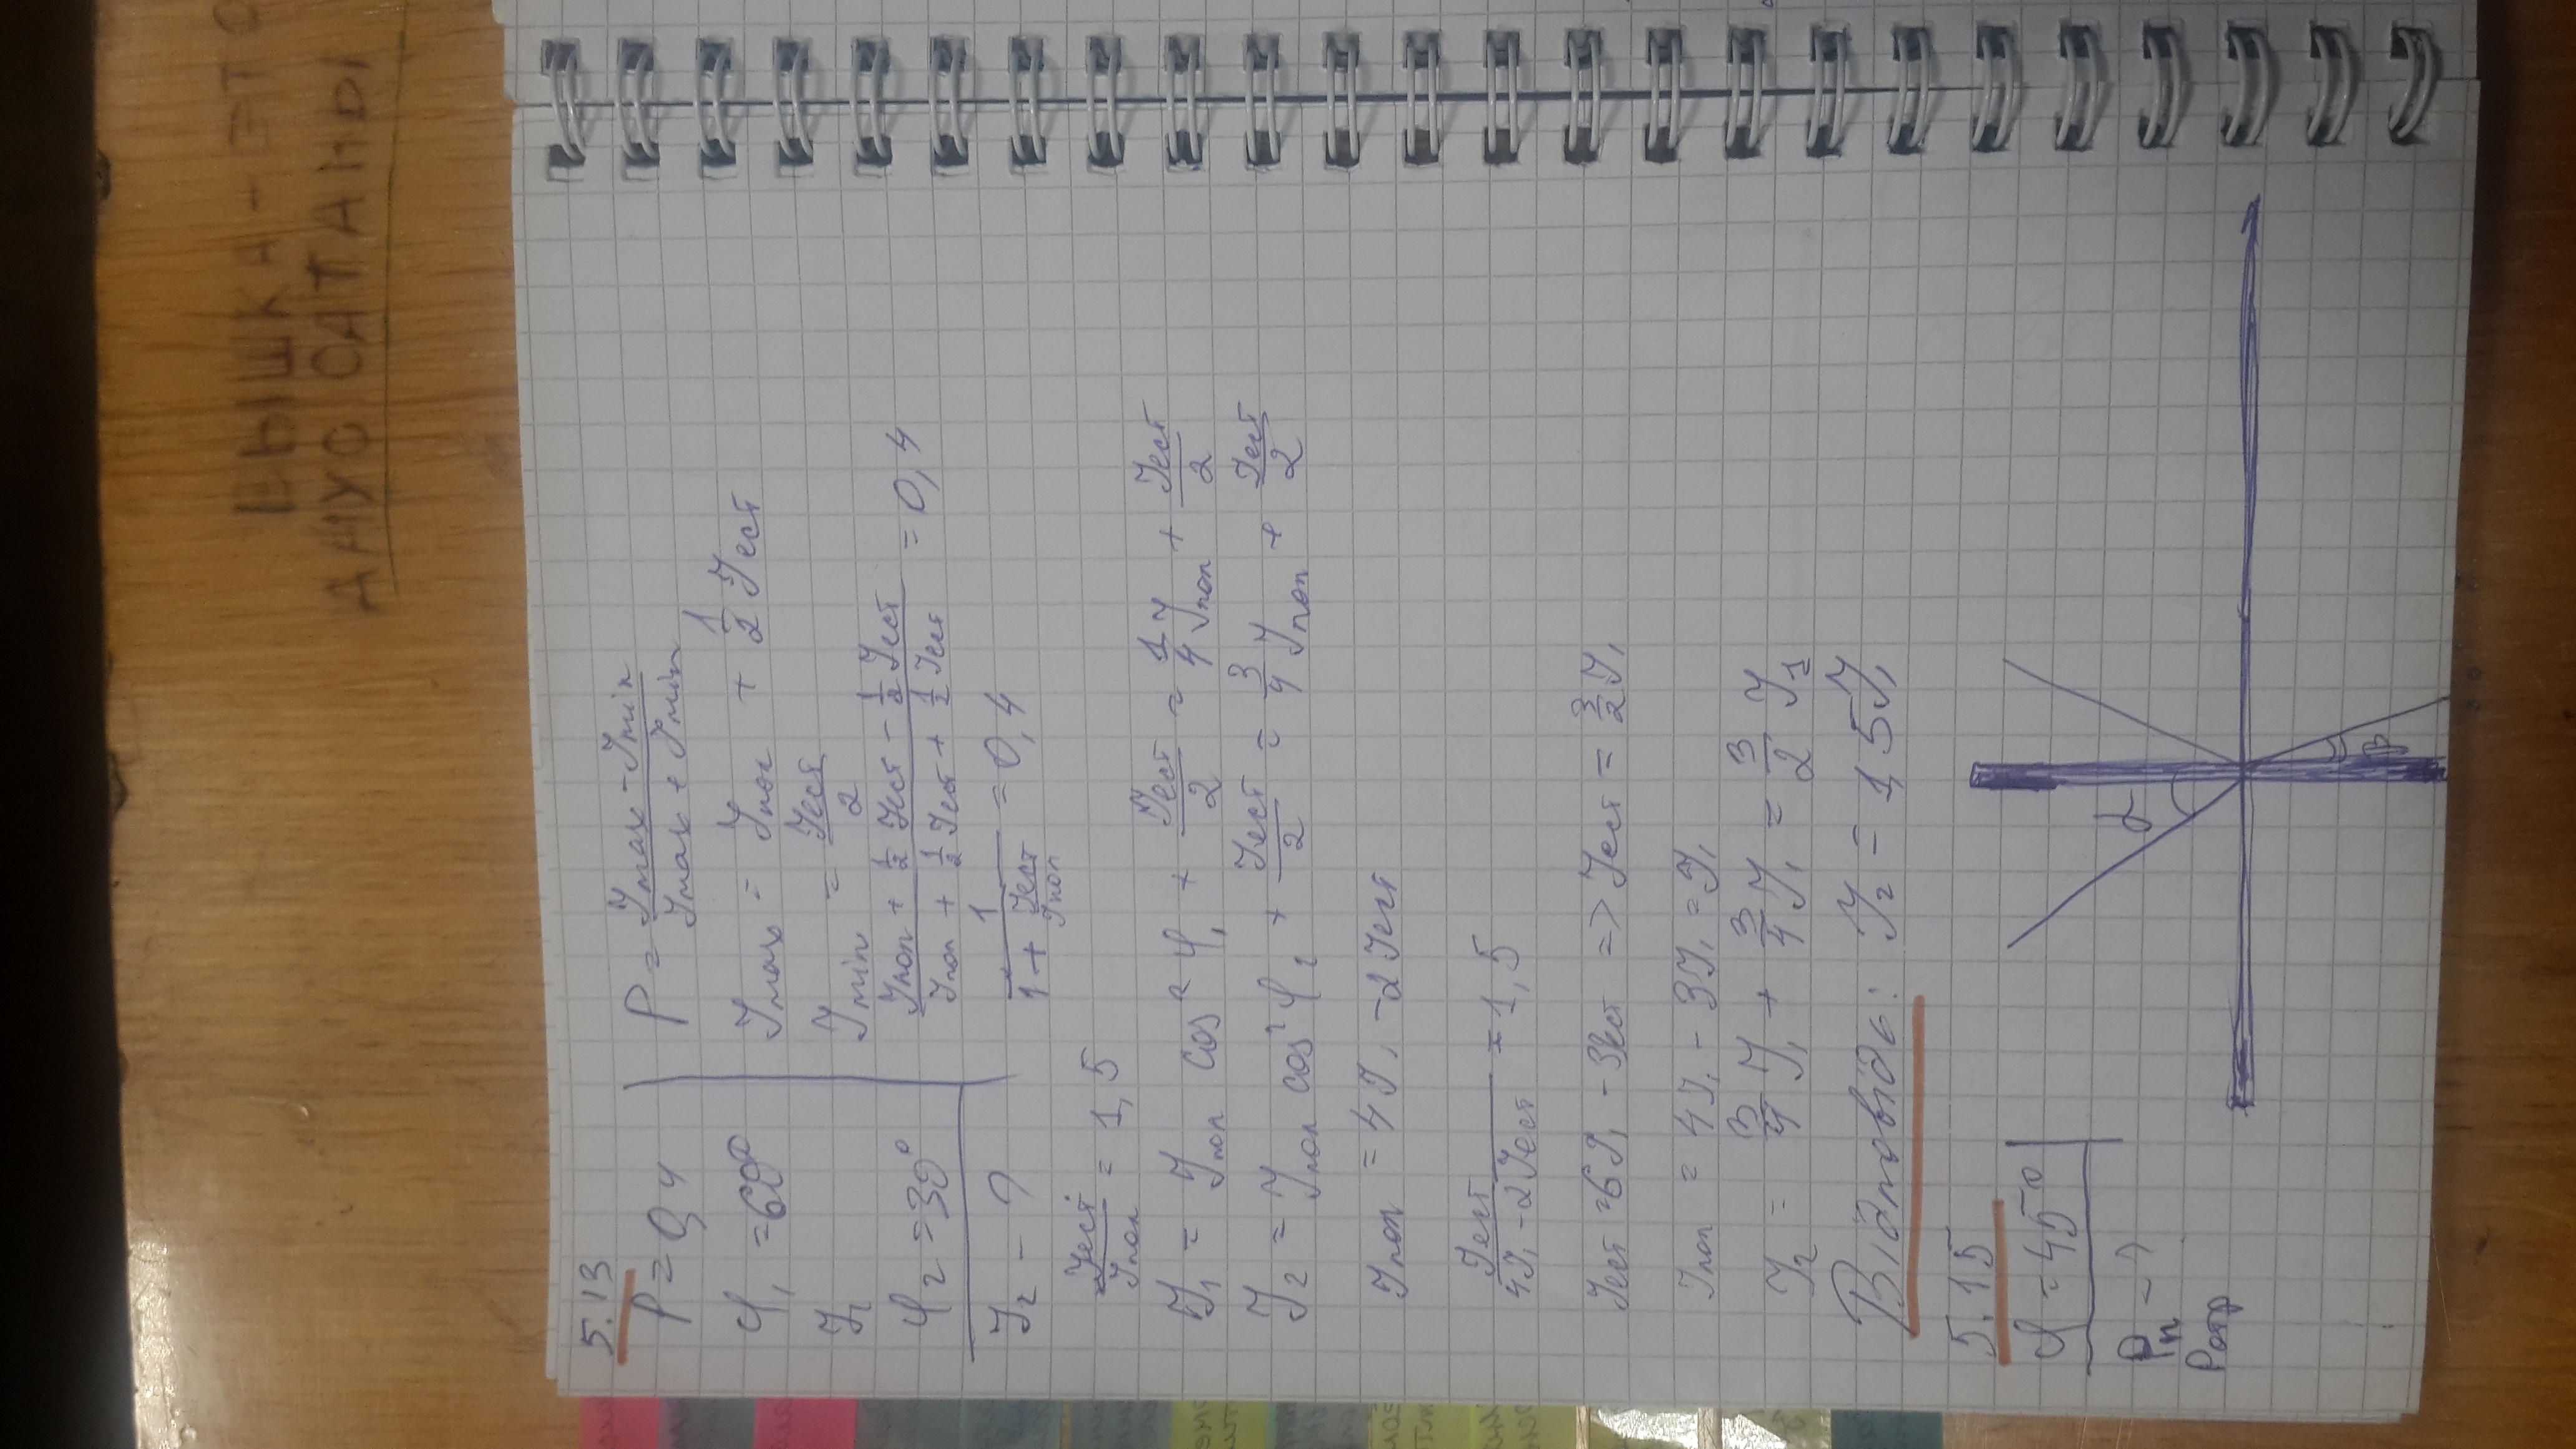 ВЫШКА - ЭТО
АНУС САТАНЫ
5.13
P = 0,4
P = (Jmax - Jmin) / (Jmax + Jmin)
φ₁ = 60°
Jmax = Jпол + 1/2 Jест
J₁
Jmin = Jест / 2
φ₂ = 30°
(Jпол + 1/2 Jест - 1/2 Jест) / (Jпол + 1/2 Jест + 1/2 Jест) = 0,4
J₂ - ?
1 / (1 + Jест/Jпол) = 0,4
Jест / Jпол = 1,5
J₁ = Jпол cos² φ₁ + Jест/2 = 1/4 Jпол + Jест/2
J₂ = Jпол cos² φ₂ + Jест/2 = 3/4 Jпол + Jест/2
Jпол = 4J₁ - 2Jест
Jест / (4J₁ - 2Jест) = 1,5
Jест = 6J₁ - 3Jест => Jест = 3/2 J₁
Jпол = 4J₁ - 3J₁ = J₁
J₂ = 3/4 J₁ + 3/4 J₁ = 3/2 J₁
Відповідь: J₂ = 1,5J₁
5.15
φ = 45°
Pп - ?
Pотр
α
β